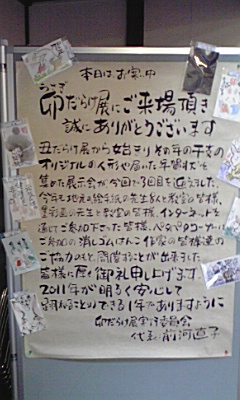 本日はお寒い中
うさぎ
卯だらけ展にご来場頂き
誠にありがとうございます
丑だらけ展から始まりその年の干支の
オリジナルの人形や届いた年賀状を
集めた展示会が今回で3回目を迎えました。
今年も地元の絵手紙の先生など教室の皆様、
先生と教室の皆様、インターネットを
通じご参加下さった皆様、ペタペタコーナーに
ご参加の消しゴムはんこ作家の皆様達の
ご協力のもと、開催することが出来ました。
皆様に厚く御礼申し上げます
2011年が明るく安心して
できる1年でありますように
卯だらけ展実行委員会
代表 前河直子